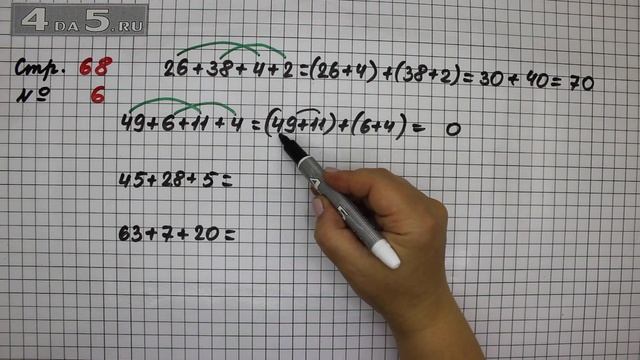 4DA5.RU
Стр. 68
№ 6
26+38+4+2=(26+4)+(38+2)=30+40=70
49+6+11+4=(49+11)+(6+4)= 0
45+28+5=
63+7+20=